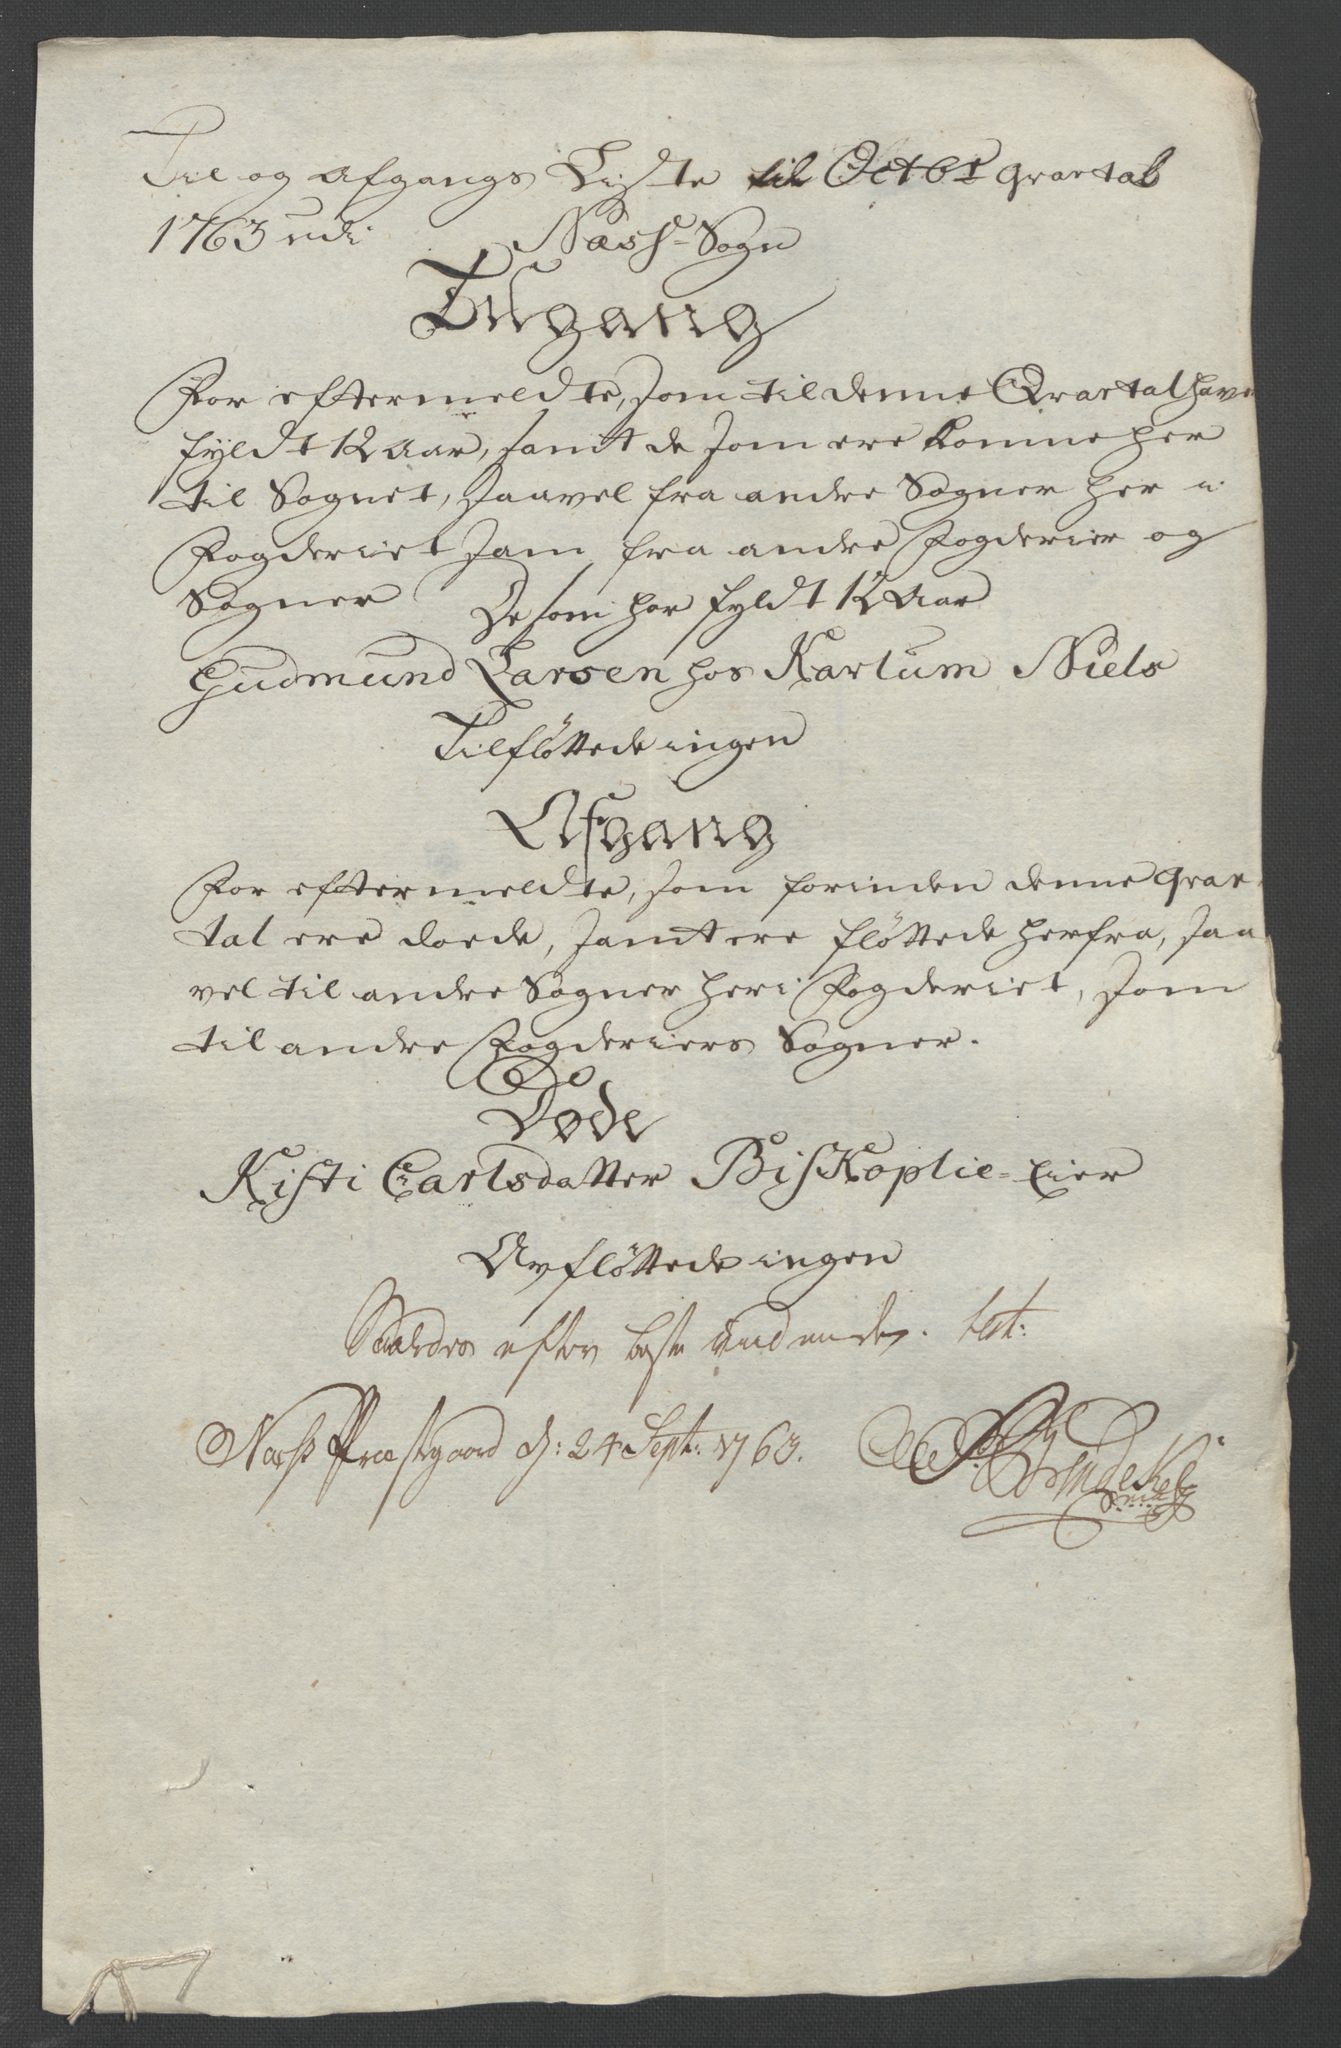 Til og afgangs Liste til Octbr qvartal
1763 udi Næss-Sogn
Tilgang
For eftermeldte, som til denne Qvartal have
fyldt 12 Aar, samt de som ere komne her
til Sognet, saavel fra andre Sogner her i
Fogderiet som fra andre Fogderier og
Sogner De som har fyldt 12 Aar
Gudmund Larsen hos Karlum Niels
Tilflöttede ingen
Afgang
For eftermeldte, som forinden denne qvar-
tal ere doede, samt ere flöttede herfra, saa
vel til andre Sogner her i Fogderiet, som
til andre Fogderiers Sogner.
Døde
Kisti Carlsdatter Biskoplie-Eier
Avflöttede ingen
Saaledes efter beste vidende. test:
Næss Præstgaard d: 24 Sept: 1763.